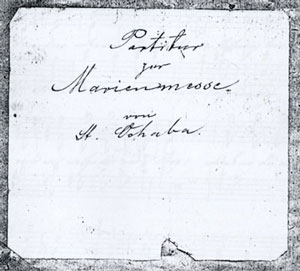 Partitur
zur
Marienmesse.
von
St. Ochaba.